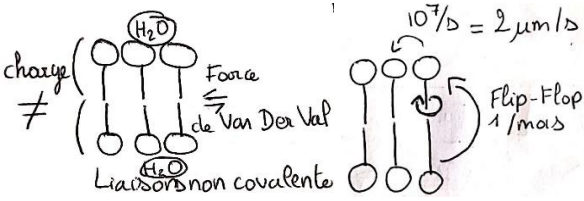 H₂O
charge
≠
Force
de Van Der Val
H₂O
Liaisons non covalente
10⁷/s = 2 µm/s
Flip-Flop
1/mois